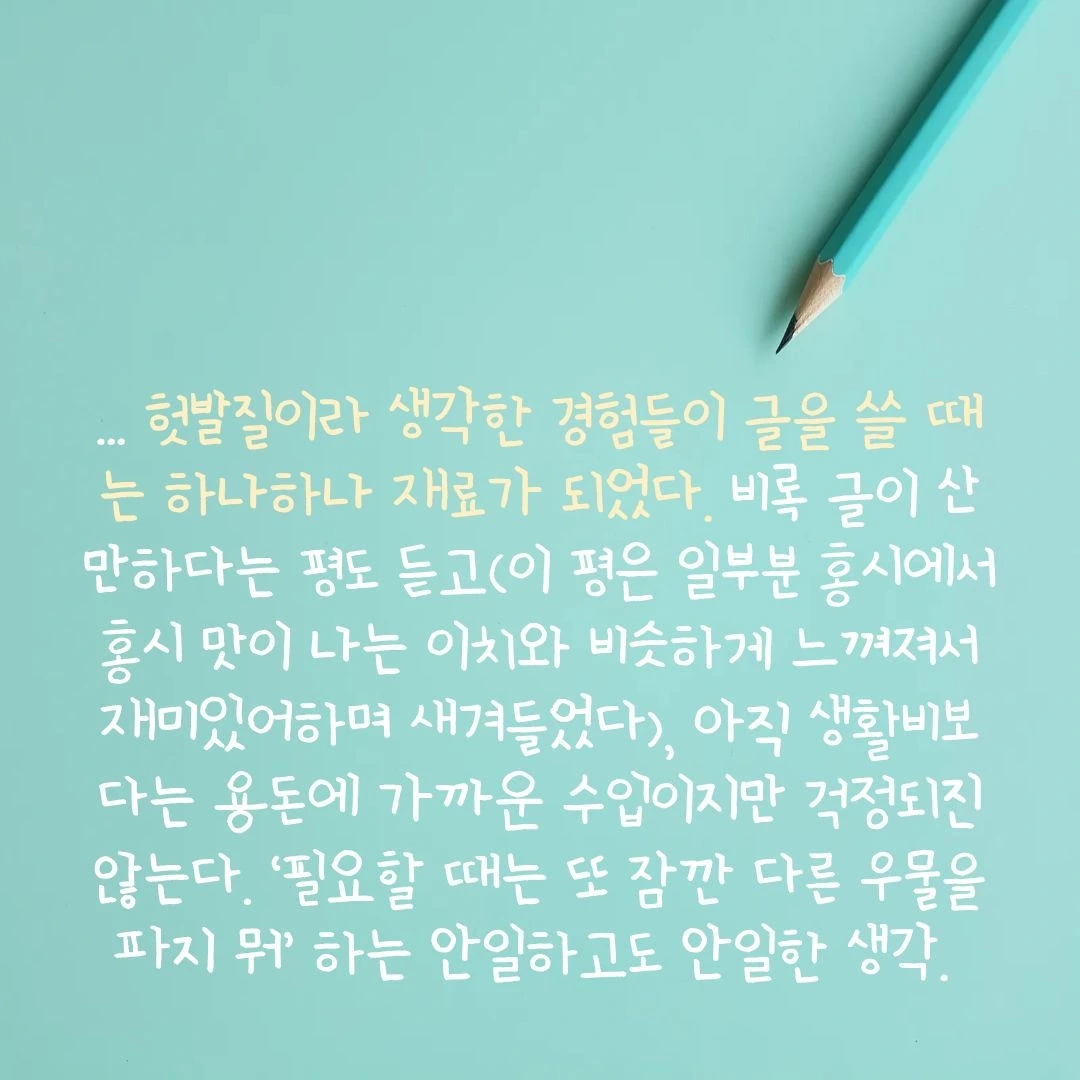 ... 헛발질이라 생각한 경험들이 글을 쓸 때
는 하나하나 재료가 되었다. 비록 글이 산
만하다는 평도 듣고(이 평은 일부분 홍시에서
홍시 맛이 나는 이치와 비슷하게 느껴져서
재미있어하며 새겨들었다), 아직 생활비보
다는 용돈에 가까운 수입이지만 걱정되진
않는다. ‘필요할 때는 또 잠깐 다른 우물을
파지 뭐’ 하는 안일하고도 안일한 생각.